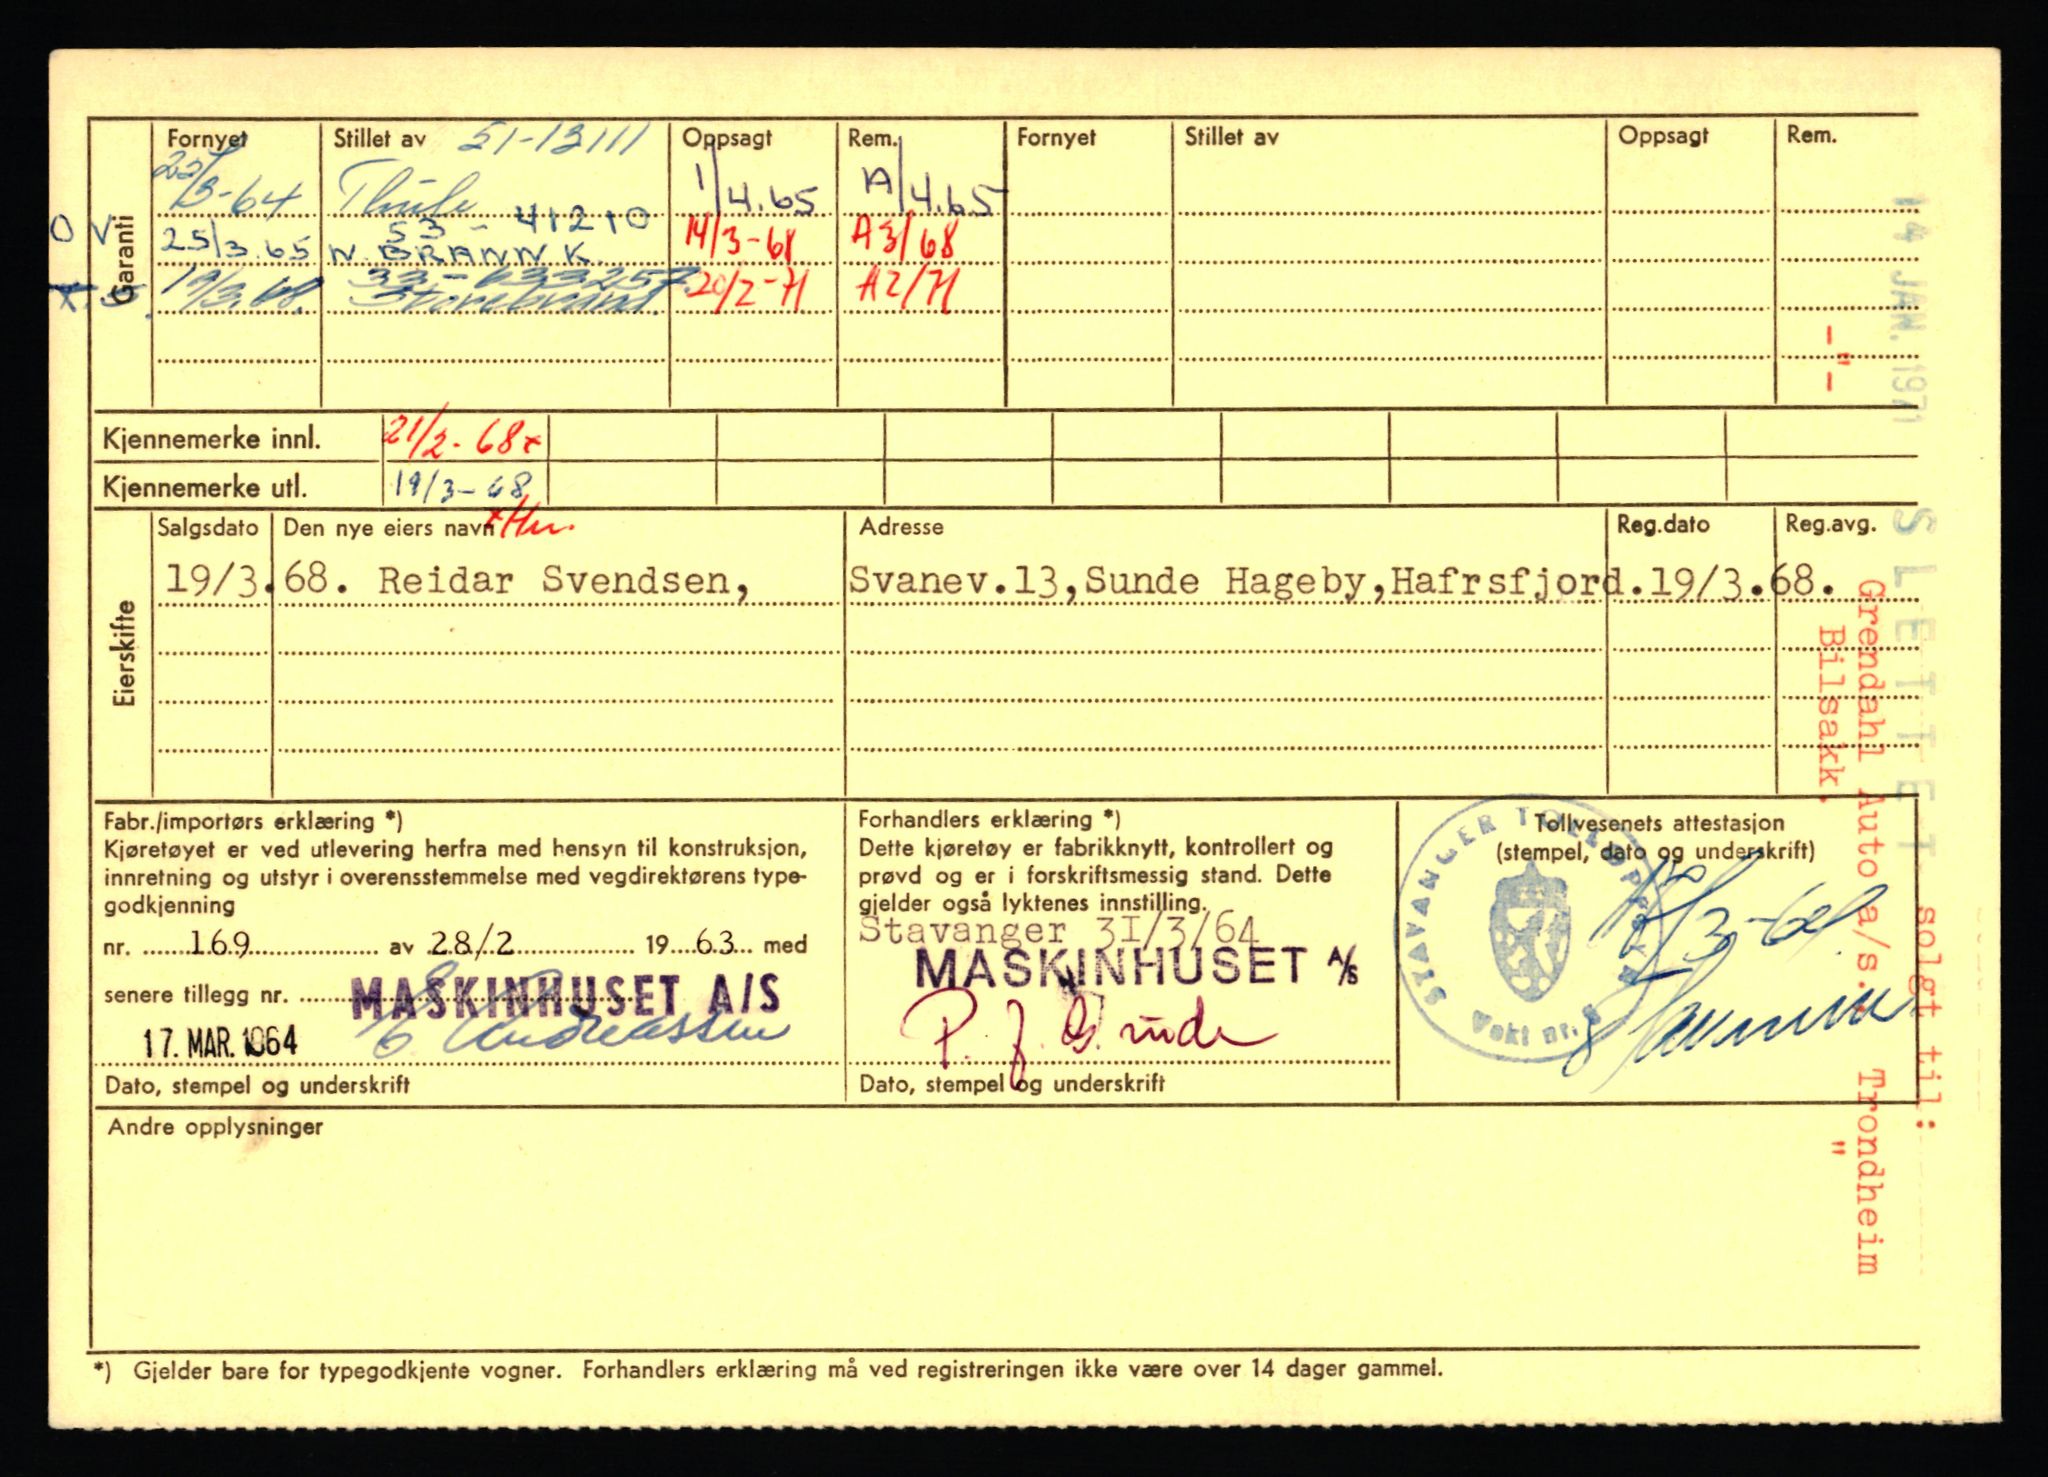 Fornyet Stillet av 51-13111 Oppsagt Rem. Fornyet Stillet av Oppsagt Rem.
Garanti
/3-64 Thule 1/4.65 A/4.65
O V 25/3.65 53-41210 14/3-68 A3/68
N. BRANN K.
19/3.68. 33-633257. 20/2-71 A2/71
Storebrand.
Kjennemerke innl. 21/2-68x
Kjennemerke utl. 19/3-68
Eierskifte
Salgsdato Den nye eiers navn Adresse Reg.dato Reg.avg.
19/3.68. Reidar Svendsen, Svanev.13,Sunde Hageby,Hafrsfjord.19/3.68.
Fabr./importørs erklæring *)
Kjøretøyet er ved utlevering herfra med hensyn til konstruksjon,
innretning og utstyr i overensstemmelse med vegdirektørens type-
godkjenning
nr. 169 av 28/2 1963 med
senere tillegg nr.
MASKINHUSET A/S
17. MAR. 1964 E. Andreassen
Dato, stempel og underskrift
Forhandlers erklæring *)
Dette kjøretøy er fabrikknytt, kontrollert og
prøvd og er i forskriftsmessig stand. Dette
gjelder også lyktenes innstilling.
Stavanger 3I/3/64
MASKINHUSET A/S
Dato, stempel og underskrift
Tollvesenets attestasjon
(stempel, dato og underskrift)
STAVANGER TOLLOPPSYN
Vakt nr. 8
Andre opplysninger
*) Gjelder bare for typegodkjente vogner. Forhandlers erklæring må ved registreringen ikke være over 14 dager gammel.
14 JAN. 1971 SLETTET solgt til:
Grendahl Auto a/s. Trondheim
-"- Bilsakk. "